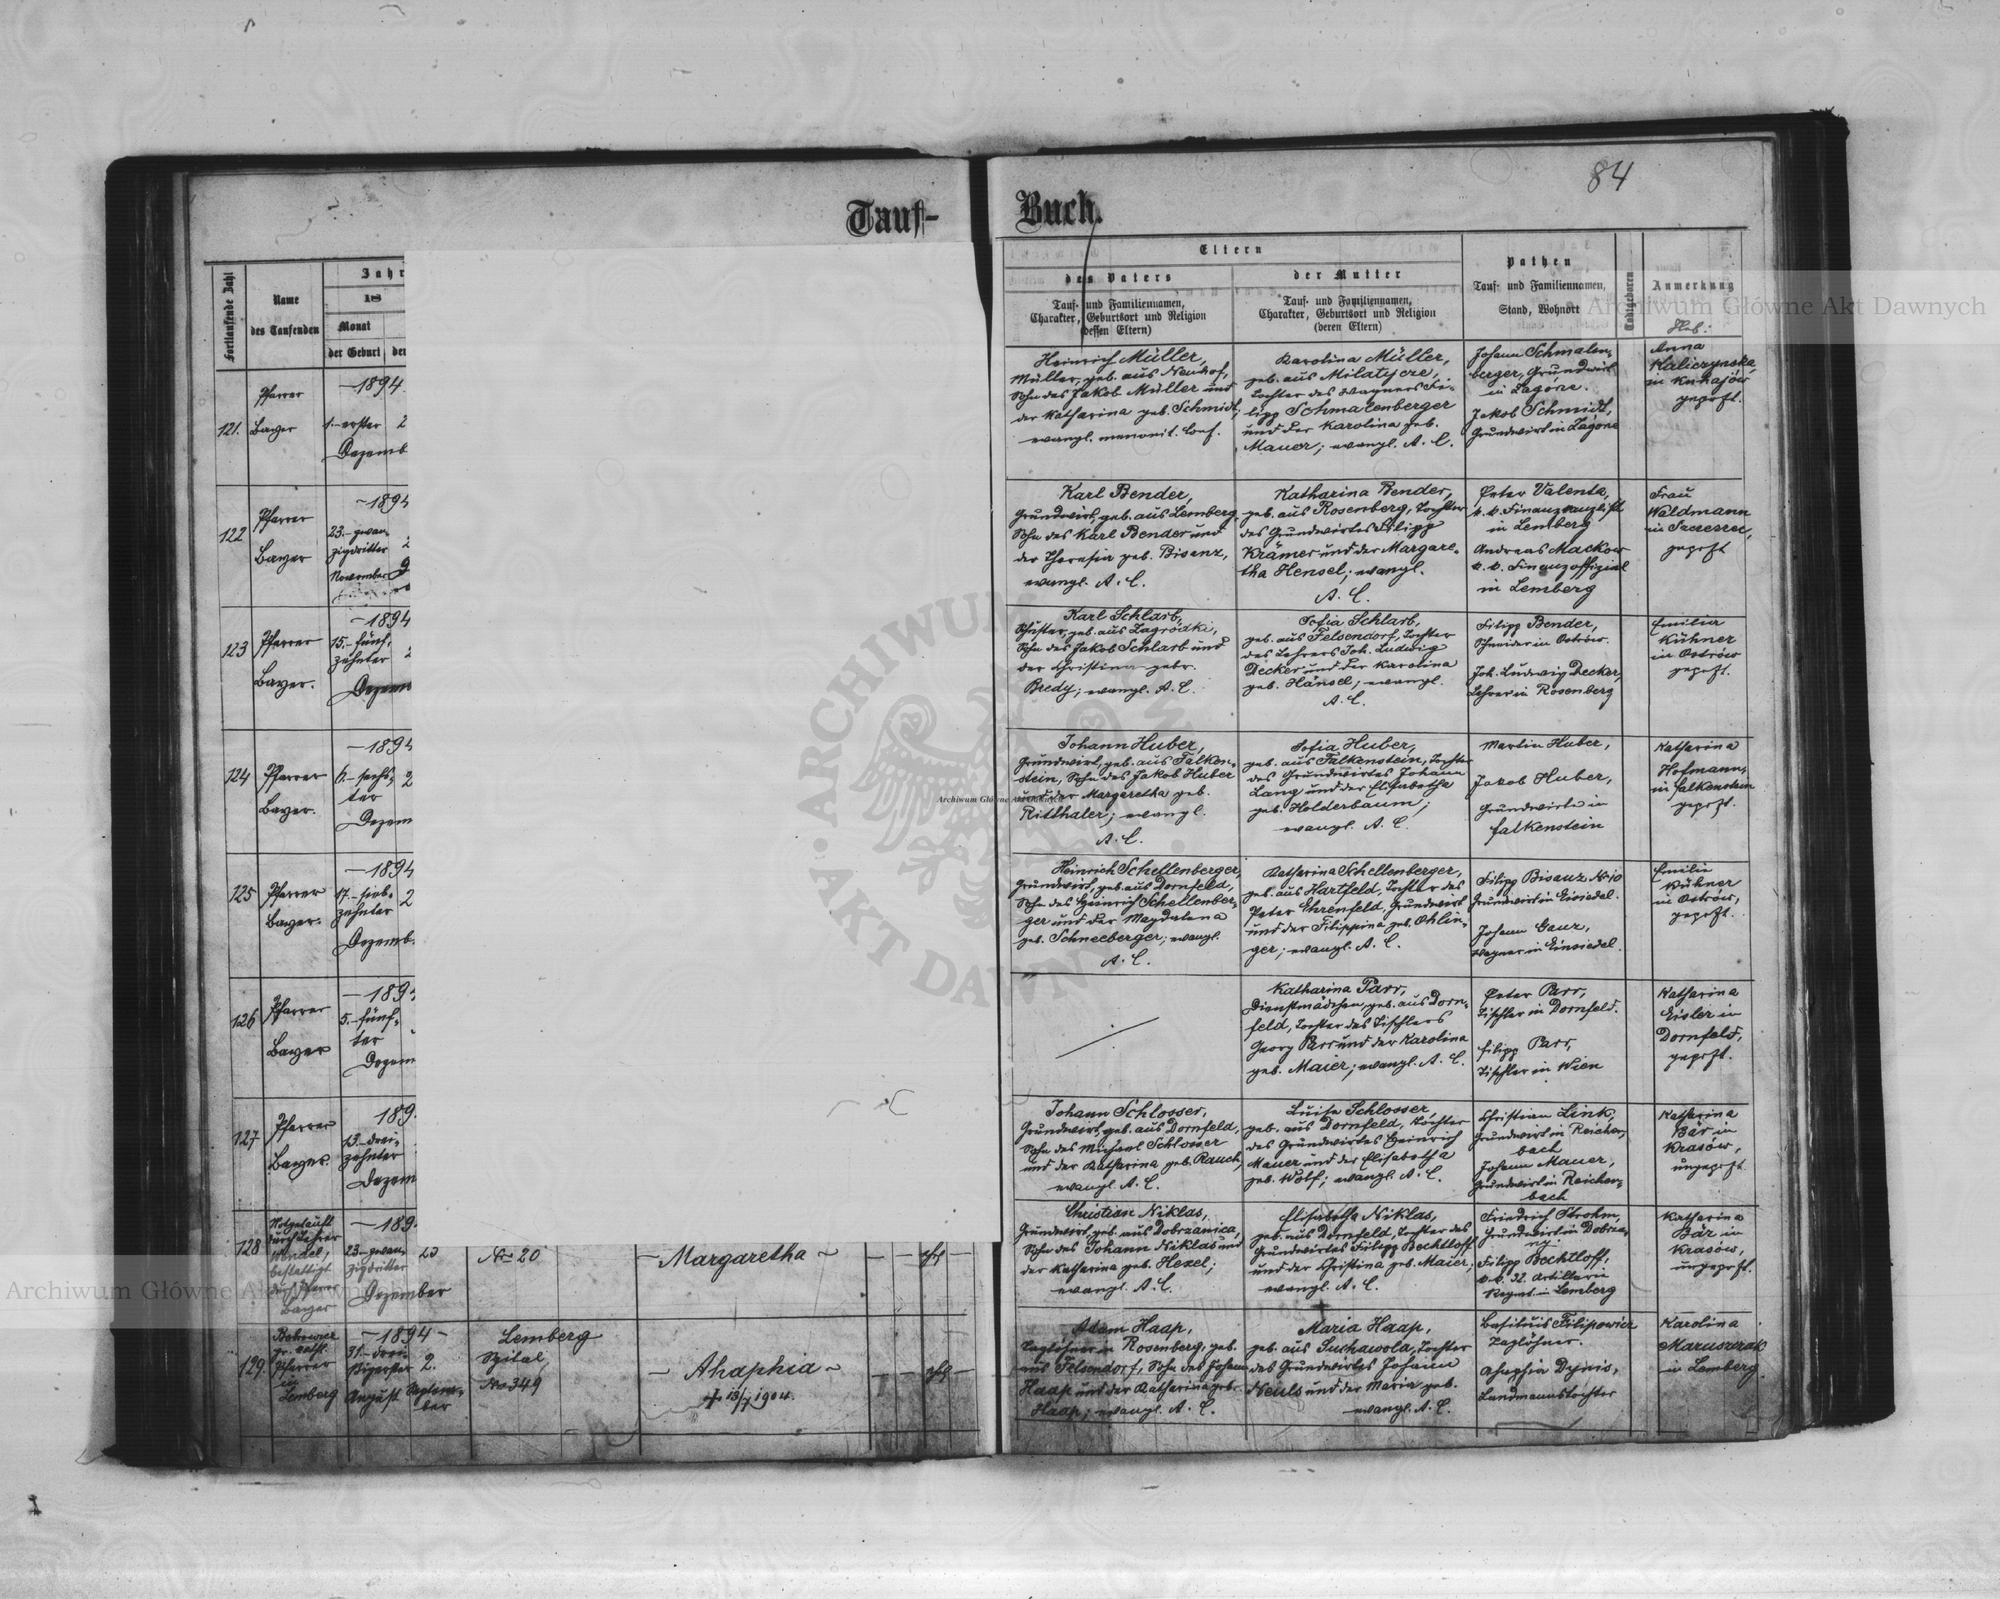 84
Tauf-
Buch.
Fortlaufende Zahl
Name
des Taufenden
Jahr
18
Monat
der Geburt
der
Eltern
des Vaters
Tauf- und Familiennamen,
Charakter, Geburtsort und Religion
(dessen Eltern)
der Mutter
Tauf- und Familiennamen,
Charakter, Geburtsort und Religion
(deren Eltern)
Pathen
Tauf- und Familiennamen,
Stand, Wohnort
Todtgeboren
Anmerkung
Heb:
121.
Pfarrer
Bayer
-1894
1.- erster 2
Dezemb
Heinrich Müller,
Müller, geb. aus Neuhof,
Sohn des Jakob Müller und
der Katharina geb. Schmidt,
evangl. menonit. Conf.
Karolina Müller,
geb. aus Milatycze,
Tochter des Wagners Fi-
lipp Schmalenberger
und der Karolina geb.
Mauer; evangl. A. C.
Johann Schmalen-
berger, Grundwirt
in Zagórze.
Jakob Schmidt,
Grundwirt in Zagórze
Anna
Kaliczynska,
in Kuhajów
geprft.
122
Pfarrer
Bayer
-1894
23.- zwan-
zigdritter
November
Karl Bender,
Grundwirt, geb. aus Lemberg
Sohn des Karl Bender und
der Theresia geb. Bisanz,
evangl. A. C.
Katharina Bender,
geb. aus Rosenberg, Tochter
des Grundwirtes Filipp
Krämer und der Margare-
tha Hensel; evangl.
A. C.
Peter Valenta,
k. k. Finanzkanzlist
in Lemberg
Andreas Mackow
k. k. Finanzoffizial
in Lemberg
Frau
Weldmann
in
geprft
123
Pfarrer
Bayer.
-1894
15.- fünf-
zehnter
Dezem
Karl Schlarb,
Schuster, geb. aus Zagrodki,
Sohn des Jakob Schlarb und
der Christina gebr.
Bredy; evangl. A. C.
Sofia Schlarb,
geb. aus Felsendorf, Tochter
des Lehrers Joh. Ludwig
Decker und der Karolina
geb. Hänsel; evangl.
A. C.
Filipp Bender,
Schneider in Ostrów.
Joh. Ludwig Decker,
Lehrer in Rosenberg
Emilia
Kühner
in Ostrów
geprft.
124
Pfarrer
Bayer.
-1894
6.- sechs- 2
ter
Dezem
Johann Huber,
Grundwirt, geb. aus Falken-
stein, Sohn des Jakob Huber
und der Margaretha geb.
Ritthaler; evangl.
A. C.
Sofia Huber,
geb. aus Falkenstein, Tochter
des Grundwirtes Johann
Lang und der Elisabetha
geb. Holderbaum;
evangl. A. C.
Martin Huber,
Jakob Huber,
Grundwirte in
Falkenstein
Katharina
Hofmann,
in Falkenstein
geprft.
125
Pfarrer
Bayer.
-1894
17.- sieb-
zehnter 2
Dezemb.
Heinrich Schellenberger,
Grundwirt, geb. aus Dornfeld,
Sohn des Heinrich Schellenber-
ger und der Magdalena
geb. Schneeberger; evangl.
A. C.
Katharina Schellenberger,
geb. aus Hartfeld, Tochter des
Peter Ehrenfeld, Grundwirt
und der Filippina geb. Ohlin-
ger; evangl. A. C.
Filipp Bisanz No 10
Grundwirt in Einsiedel.
Johann Ganz,
Wagner in Einsiedel.
Emilie
Kühner
in Ostrów,
geprft.
126
Pfarrer
Bayer
-1894
5.- fünf-
ter
Dezem
Katharina Parr,
Dienstmädchen, geb. aus Dorn-
feld, Tochter des Tischlers
Georg Parr und der Karolina
geb. Maier; evangl. A. C.
Peter Parr,
Tischler in Dornfeld.
Filipp Parr,
Tischler in Wien
Katharina
Eisler in
Dornfeld,
geprft.
127
Pfarrer
Bayer.
189
13.- drei-
zehnter
Dezem
Johann Schlosser,
Grundwirt, geb. aus Dornfeld,
Sohn des Michael Schlosser
und der Katharina geb. Rauch,
evangl. A. C.
Luise Schlosser,
geb. aus Dornfeld, Tochter
des Grundwirtes Heinrich
Mauer und der Elisabetha
geb. Wolf; evangl. A. C.
Christian Link,
Grundwirt in Reichen-
bach
Johann Mauer,
Grundwirt in Reichen-
bach
Katharina
Bär in
Krasów,
ungeprft.
128
Notgetauft
durch Lehrer
Wendel,
bestättigt
durch Pfarrer
Bayer
-189
23.- zwan-
zigdritter 25
Dezember
No 20
- Margaretha -
Christian Niklas,
Grundwirt, geb. aus Dobrzanica,
Sohn des Johann Niklas und
der Katharina geb. Hexel;
evangl. A. C.
Elisabetha Niklas,
geb. aus Dornfeld, Tochter des
Grundwirtes Filipp Bechtloff
und der Christina geb. Maier;
evangl. A. C.
Friedrich Strohm,
Grundwirt in Dobrza-
ny
Filipp Bechtloff,
k. k. 32. Artillerie
Regmt. in Lemberg
Katharina
Bär in
Krasów,
ungeprft.
129.
gr. kath.
Pfarrer
in
Lemberg
-1894-
31.- drei-
sigerster 2.
August Septem-
ber
Lemberg
Spital
No 349
- Ahaphia -
+ 13/7 1904.
Adam Haap,
Taglöhner in Rosenberg, geb.
aus Felsendorf, Sohn des Johann
Haap und der Katharina geb.
Haap; evangl. A. C.
Maria Haap,
geb. aus Suchawola, Tochter
des Grundwirtes Johann
Neuls und der Maria geb.
evangl. A. C.
Basilius Filipowicz
Taglöhner.
Ahaphia Dynis,
Landmannstochter
Karolina
Maruszrak
in Lemberg
Archiwum Główne Akt Dawnych
Archiwum Główne Akt Dawnych
Archiwum Główne Akt Dawnych
ARCHIWUM GŁÓWNE AKT DAWNYCH